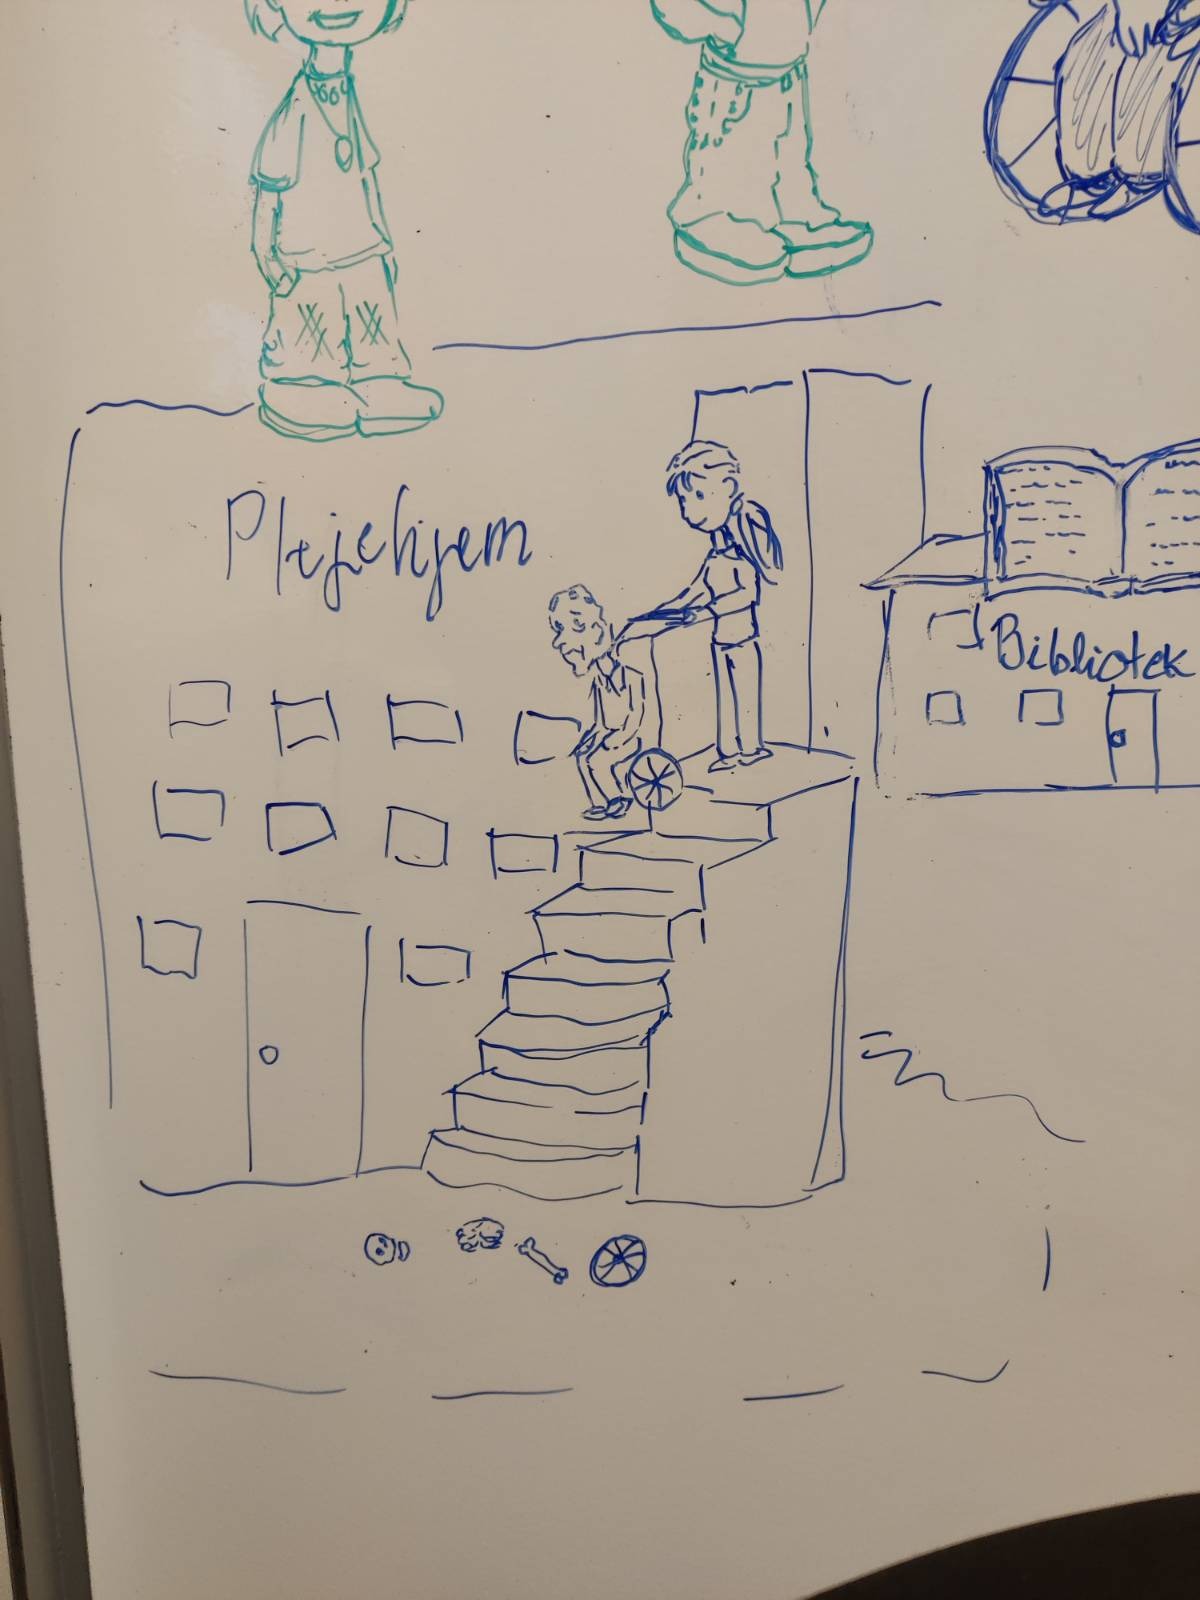 Plejehjem
Bibliotek